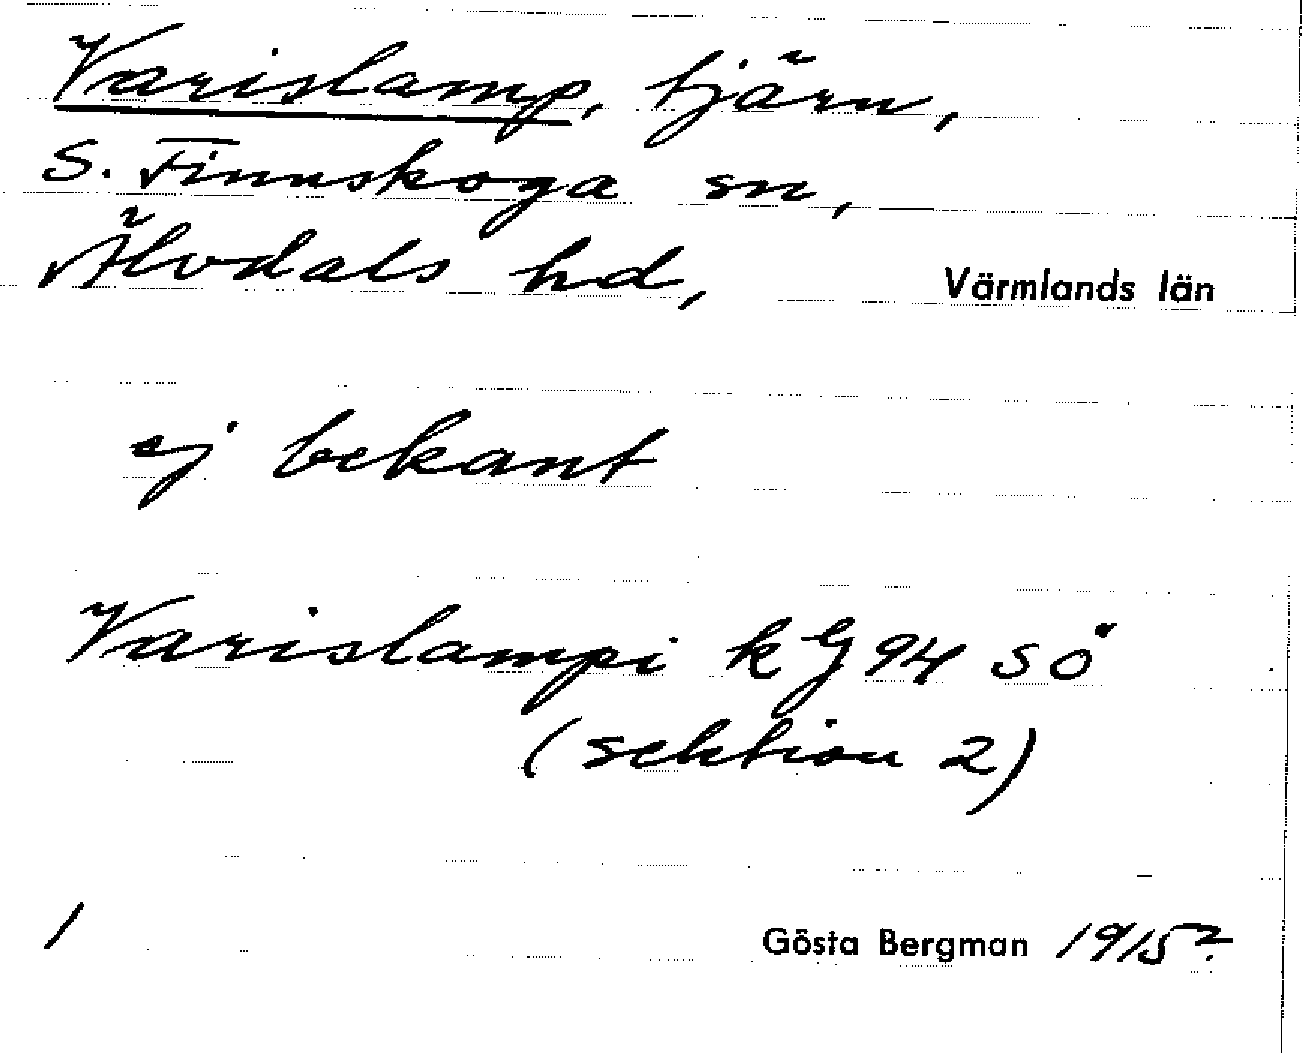 Varislamp, tjärn,
S. Finnskoga sn,
Älvdals hd, Värmlands län
ej bekant
Varislampi k G 94 SÖ
(sektion 2)
1 Gösta Bergman 1915?